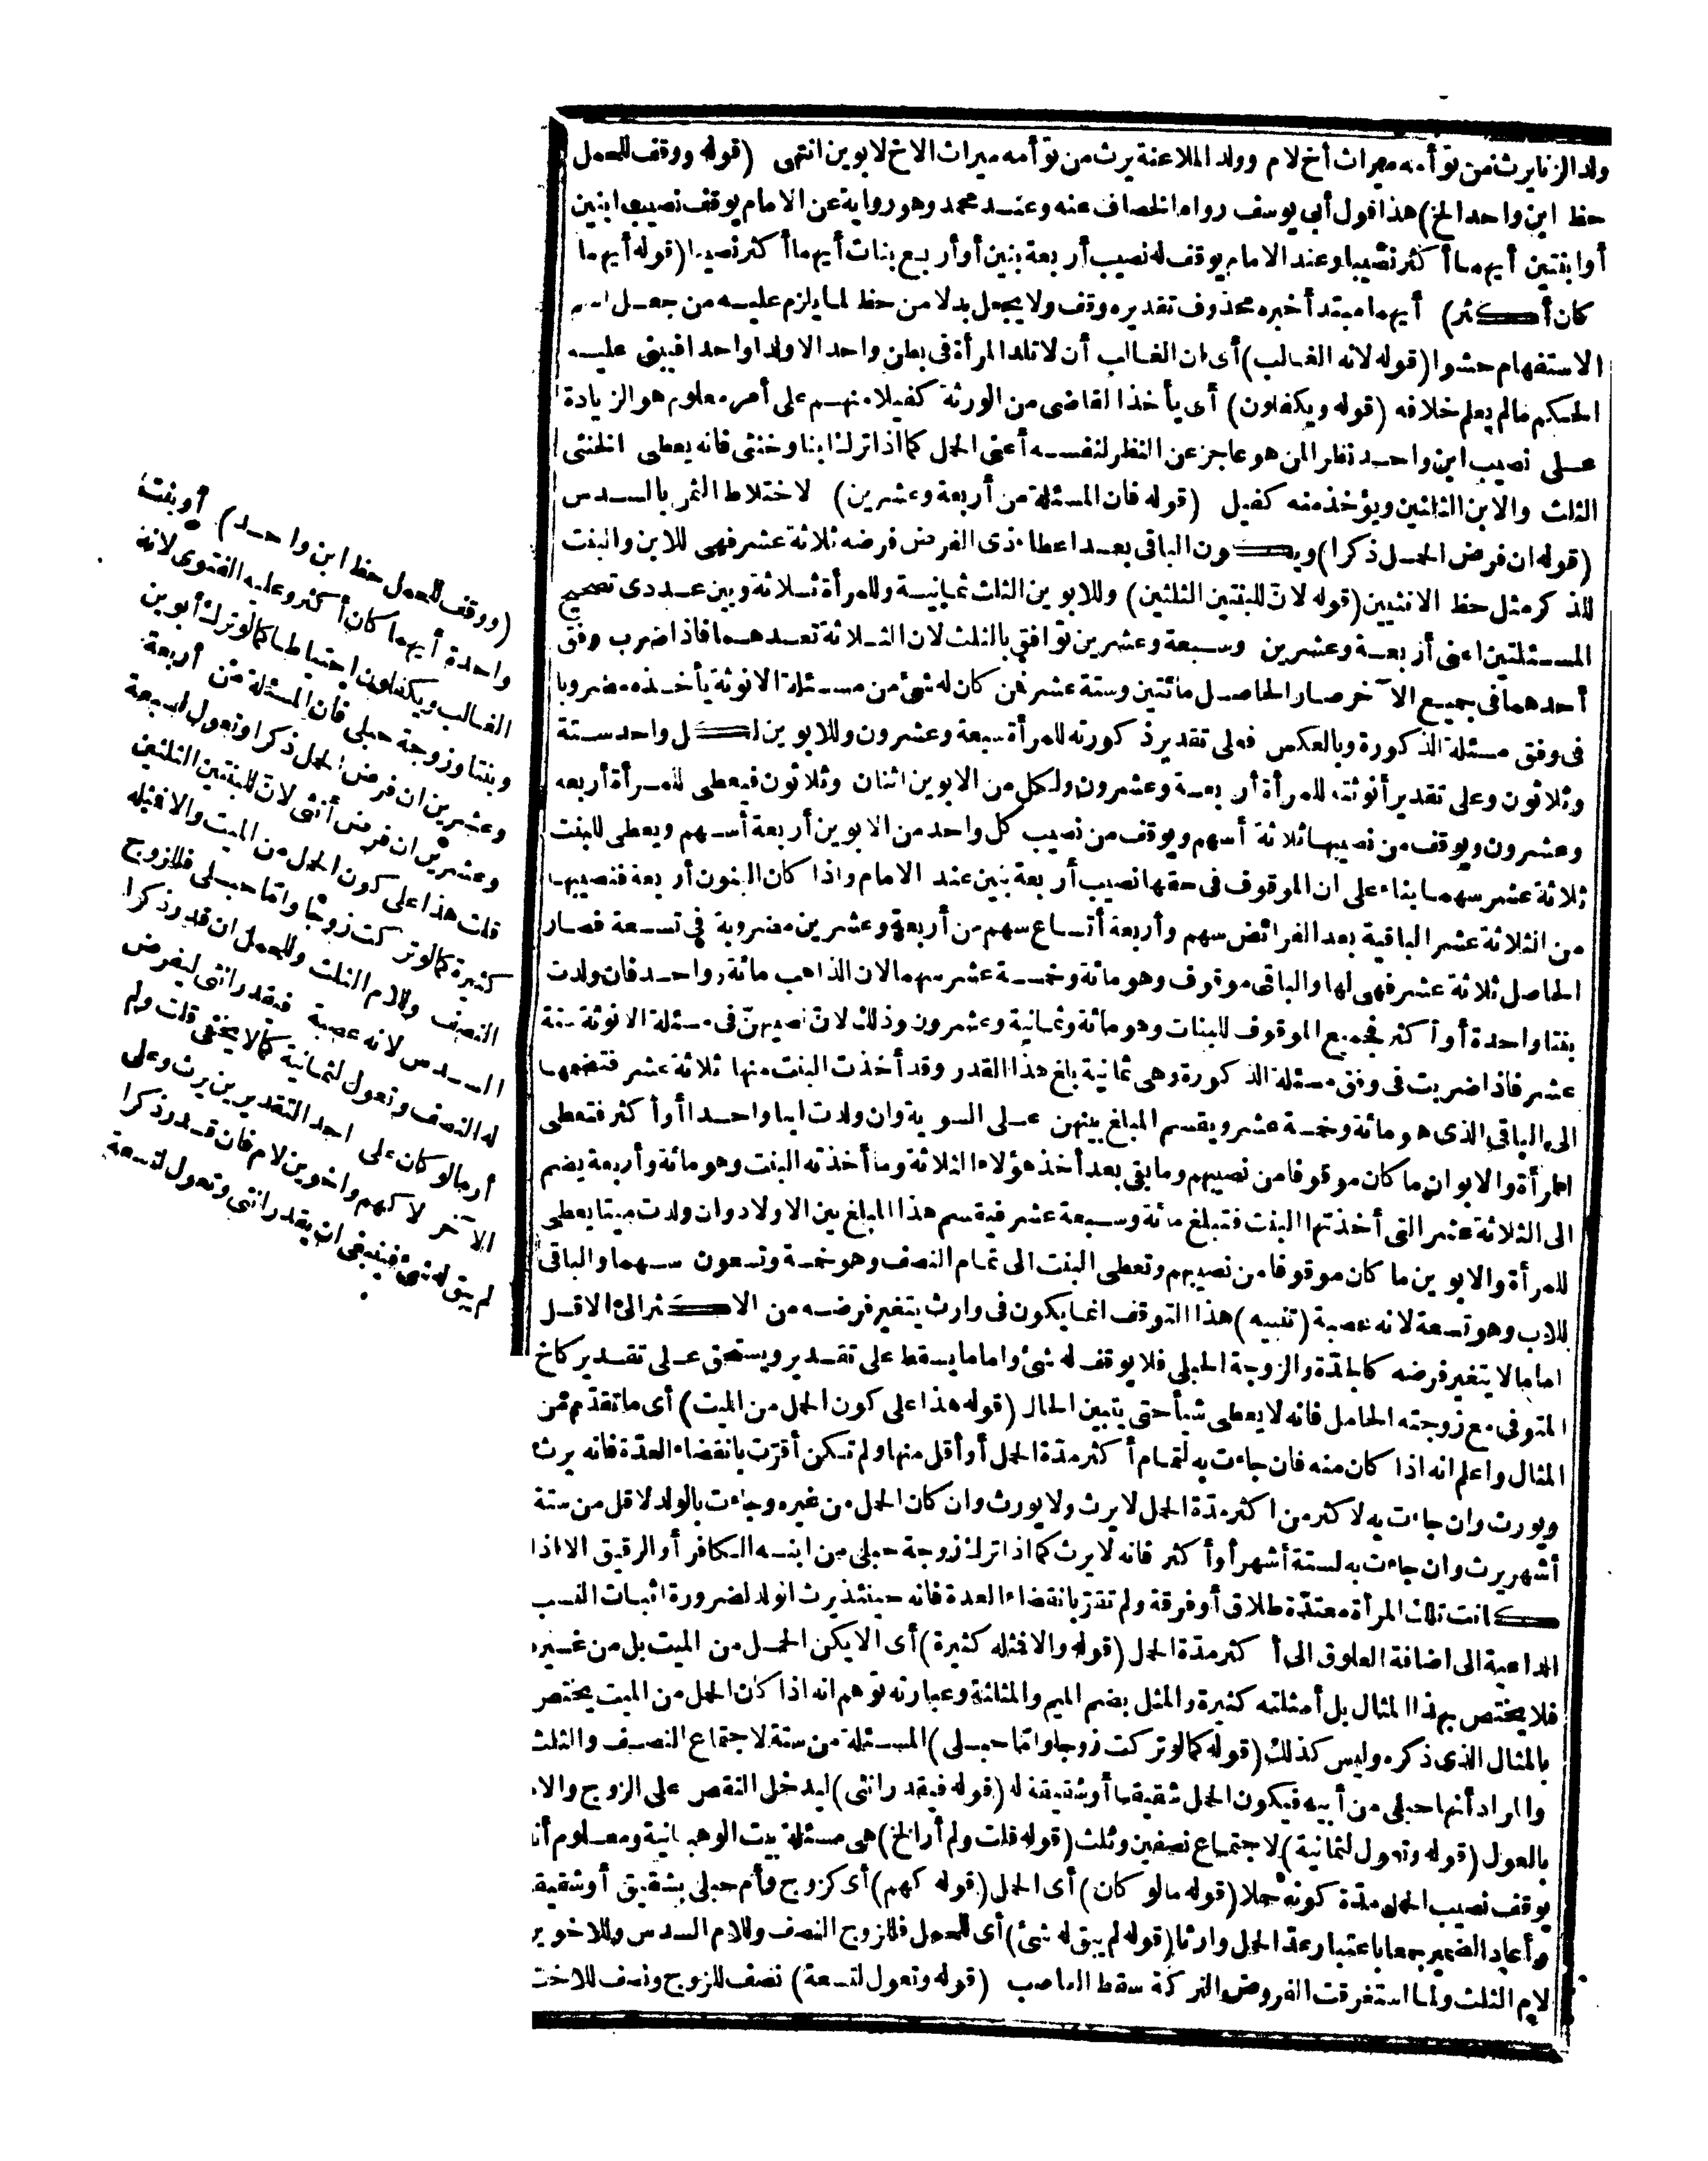 ولد الزنا يرث من توأمه ميراث أخ لام وولد الملاعنة يرث من توأمه ميراث الاخ لابوين انتهى (قوله ووقف للحمل
حظ ابن واحد الخ) هذا قول أبي يوسف رواه الخصاف عنه وعند محمد وهو رواية عن الامام يوقف نصيب ابنين
أو ابنتين أيهما أكثر نصيبا وعند الامام يوقف له نصيب أربعة بنين أو أربع بنات أيهما أكثر نصيبا (قوله أيهما
كان أكثر) أيهما مبتدأ خبره محذوف تقديره وقف ولا يجعل بدلا من حظ لما يلزم عليه من جعل اسم
الاستفهام حشوا (قوله لانه الغالب) أى ان الغالب أن لا تلد المرأة فى بطن واحد الا ولدا واحدا فيبنى عليه
الحكم ما لم يعلم خلافه (قوله ويكفلون) أى يأخذ القاضى من الورثة كفيلا منهم على أمر معلوم هو الزيادة
على نصيب ابن واحد نظرا لمن هو عاجز عن النظر لنفسه أعنى الحمل كما اذا ترك ابنا وخنثى فانه يعطى الخنثى
الثلث والابن الثلثين ويؤخذ منه كفيل (قوله فان المسئلة من أربعة وعشرين) لاختلاط الثمن بالسدس
(قوله ان فرض الحمل ذكرا) ويكون الباقى بعد اعطاء ذى الفرض فرضه ثلاثة عشر فهى للابن والبنت
للذكر مثل حظ الانثيين (قوله لانّ للبنتين الثلثين) وللابوين الثلث ثمانية وللمرأة ثلاثة وبين عددى تصحيح
المسئلتين اعنى أربعة وعشرين وسبعة وعشرين توافق بالثلث لان الثلاثة تعدهما فاذا ضرب وفق
أحدهما فى جميع الآخر صار الحاصل مائتين وستة عشر فمن كان له شئ من مسئلة الانوثة يأخذه مضروبا
فى وفق مسئلة الذكورة وبالعكس فعلى تقدير ذكورته للمرأة سبعة وعشرون وللابوين لكل واحد ستة
وثلاثون وعلى تقدير أنوثته للمرأة أربعة وعشرون ولكل من الابوين اثنان وثلاثون فيعطى للمرأة أربعة
وعشرون ويوقف من نصيبها ثلاثة أسهم ويوقف من نصيب كل واحد من الابوين أربعة أسهم ويعطى للبنت
ثلاثة عشر سهما بناء على ان الموقوف فى حقها نصيب أربعة بنين عند الامام واذا كان البنون أربعة فنصيبها
من الثلاثة عشر الباقية بعد الفرائض سهم وأربعة أتساع سهم من أربعة وعشرين مضروبة فى تسعة فصار
الحاصل ثلاثة عشر فهى لها والباقى موقوف وهو مائة وخمسة عشر سهما لان الذاهب مائة وواحد فان ولدت
بنتا واحدة أو أكثر فجميع الموقوف للبنات وهو مائة وثمانية وعشرون وذلك لانّ نصيبهنّ فى مسئلة الانوثة ستة
عشر فاذا ضربت فى وفق مسئلة الذكورة وهى ثمانية بلغ هذا القدر وقد أخذت البنت منها ثلاثة عشر فتضمها
الى الباقى الذى هو مائة وخمسة عشر ويقسم المبلغ بينهن على السوية وان ولدت ابنا واحدا أو أكثر فتعطى
المرأة والابوان ما كان موقوفا من نصيبهم وما بقى بعد أخذ هؤلاء الثلاثة وما أخذته البنت وهو مائة وأربعة يضم
الى الثلاثة عشر التى أخذتها البنت فتبلغ مائة وسبعة عشر فيقسم هذا المبلغ بين الاولاد وان ولدت ميتا يعطى
للمرأة والابوين ما كان موقوفا من نصيبهم وتعطى البنت الى تمام النصف وهو خمسة وتسعون سهما والباقى
للاب وهو تسعة لانه عصبة (تنبيه) هذا التوقف انما يكون فى وارث يتغير فرضه من الاكثر الى الاقل
اما ما لا يتغير فرضه كالجدّة والزوجة الحبلى فلا يوقف له شئ واما ما يسقط على تقدير ويستحق على تقدير كاخ
المتوفى مع زوجته الحامل فانه لا يعطى شيأ حتى يتبين الحال (قوله هذا على كون الحمل من الميت) أى ما تقدّم من
المثال واعلم انه اذا كان منه فان جاءت به لتمام أكثر مدّة الحمل أو أقل منها ولم تكن أقرّت بانقضاء العدّة فانه يرث
ويورث وان جاءت به لاكثر من اكثر مدّة الحمل لا يرث ولا يورث وان كان الحمل من غيره وجاءت بالولد لاقل من ستة
أشهر يرث وان جاءت به لستة أشهر أو أكثر فانه لا يرث كما اذا ترك زوجة حبلى من ابنه الكافر أو الرقيق الا اذا
كانت تلك المرأة معتدّة طلاق أو فرقة ولم تقرّ بانقضاء العدة فانه حينئذ يرث الولد لضرورة اثبات النسب
الداعية الى اضافة العلوق الى أكثر مدّة الحمل (قوله والا فمثله كثيرة) أى الا يكن الحمل من الميت بل من غيره
فلا يختص بهذا المثال بل أمثلته كثيرة والمثل بضم الميم والمثلثة وعبارته توهم انه اذا كان الحمل من الميت يختص
بالمثال الذى ذكره وليس كذلك (قوله كما لو تركت زوجا وامّا حبلى) المسئلة من ستة لاجتماع النصف والثلث
والمراد أنها حبلى من أبيه فيكون الحمل شقيقا أو شقيقة له (قوله فيقدر انثى) ليدخل النقص على الزوج والام
بالعول (قوله وتعول لثمانية) لاجتماع نصفين وثلث (قوله قلت ولم أر الخ) هى مسئلة بيت الوهبانية ومعلوم أنه
يوقف نصيب الحمل مدّة كونه حملا (قوله ما لو كان) أى الحمل (قوله كهم) أى كزوج وأم حبلى بشقيق أو شقيقة
وأعاد الضمير جمعا باعتبار عدّ الحمل وارثا (قوله لم يبق له شئ) أى للحمل فللزوج النصف وللام السدس وللاخوين
لام الثلث ولما استغرقت الفروض التركة سقط العاصب (قوله وتعول لتسعة) نصف للزوج ونصف للاخت
(ووقف للحمل حظ ابن واحد) أو بنت
واحدة أيهما كان أكثر وعليه الفتوى لانه
الغالب ويكفلون احتياطا كما لو ترك أبوين
وبنتا وزوجة حبلى فان المسئلة من أربعة
وعشرين ان فرض الحمل ذكرا وتعول لسبعة
وعشرين ان فرض أنثى لانّ للبنتين الثلثين
قلت هذا على كون الحمل من الميت والا فمثله
كثيرة كما لو تركت زوجا وامّا حبلى فللزوج
النصف وللام الثلث وللحمل ان قدر ذكرا
السدس لانه عصبة فيقدر انثى ليفرض
له النصف وتعول لثمانية كما لا يخفى قلت ولم
أر ما لو كان على احد التقديرين يرث وعلى
الآخر لا كهم واخوين لام فان قدر ذكرا
لم يبق له شئ فينبغى ان يقدر انثى وتعول لتسعة